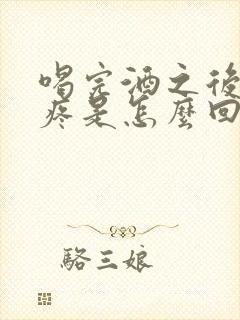 喝完酒之後
疼是怎麼回
駱三娘